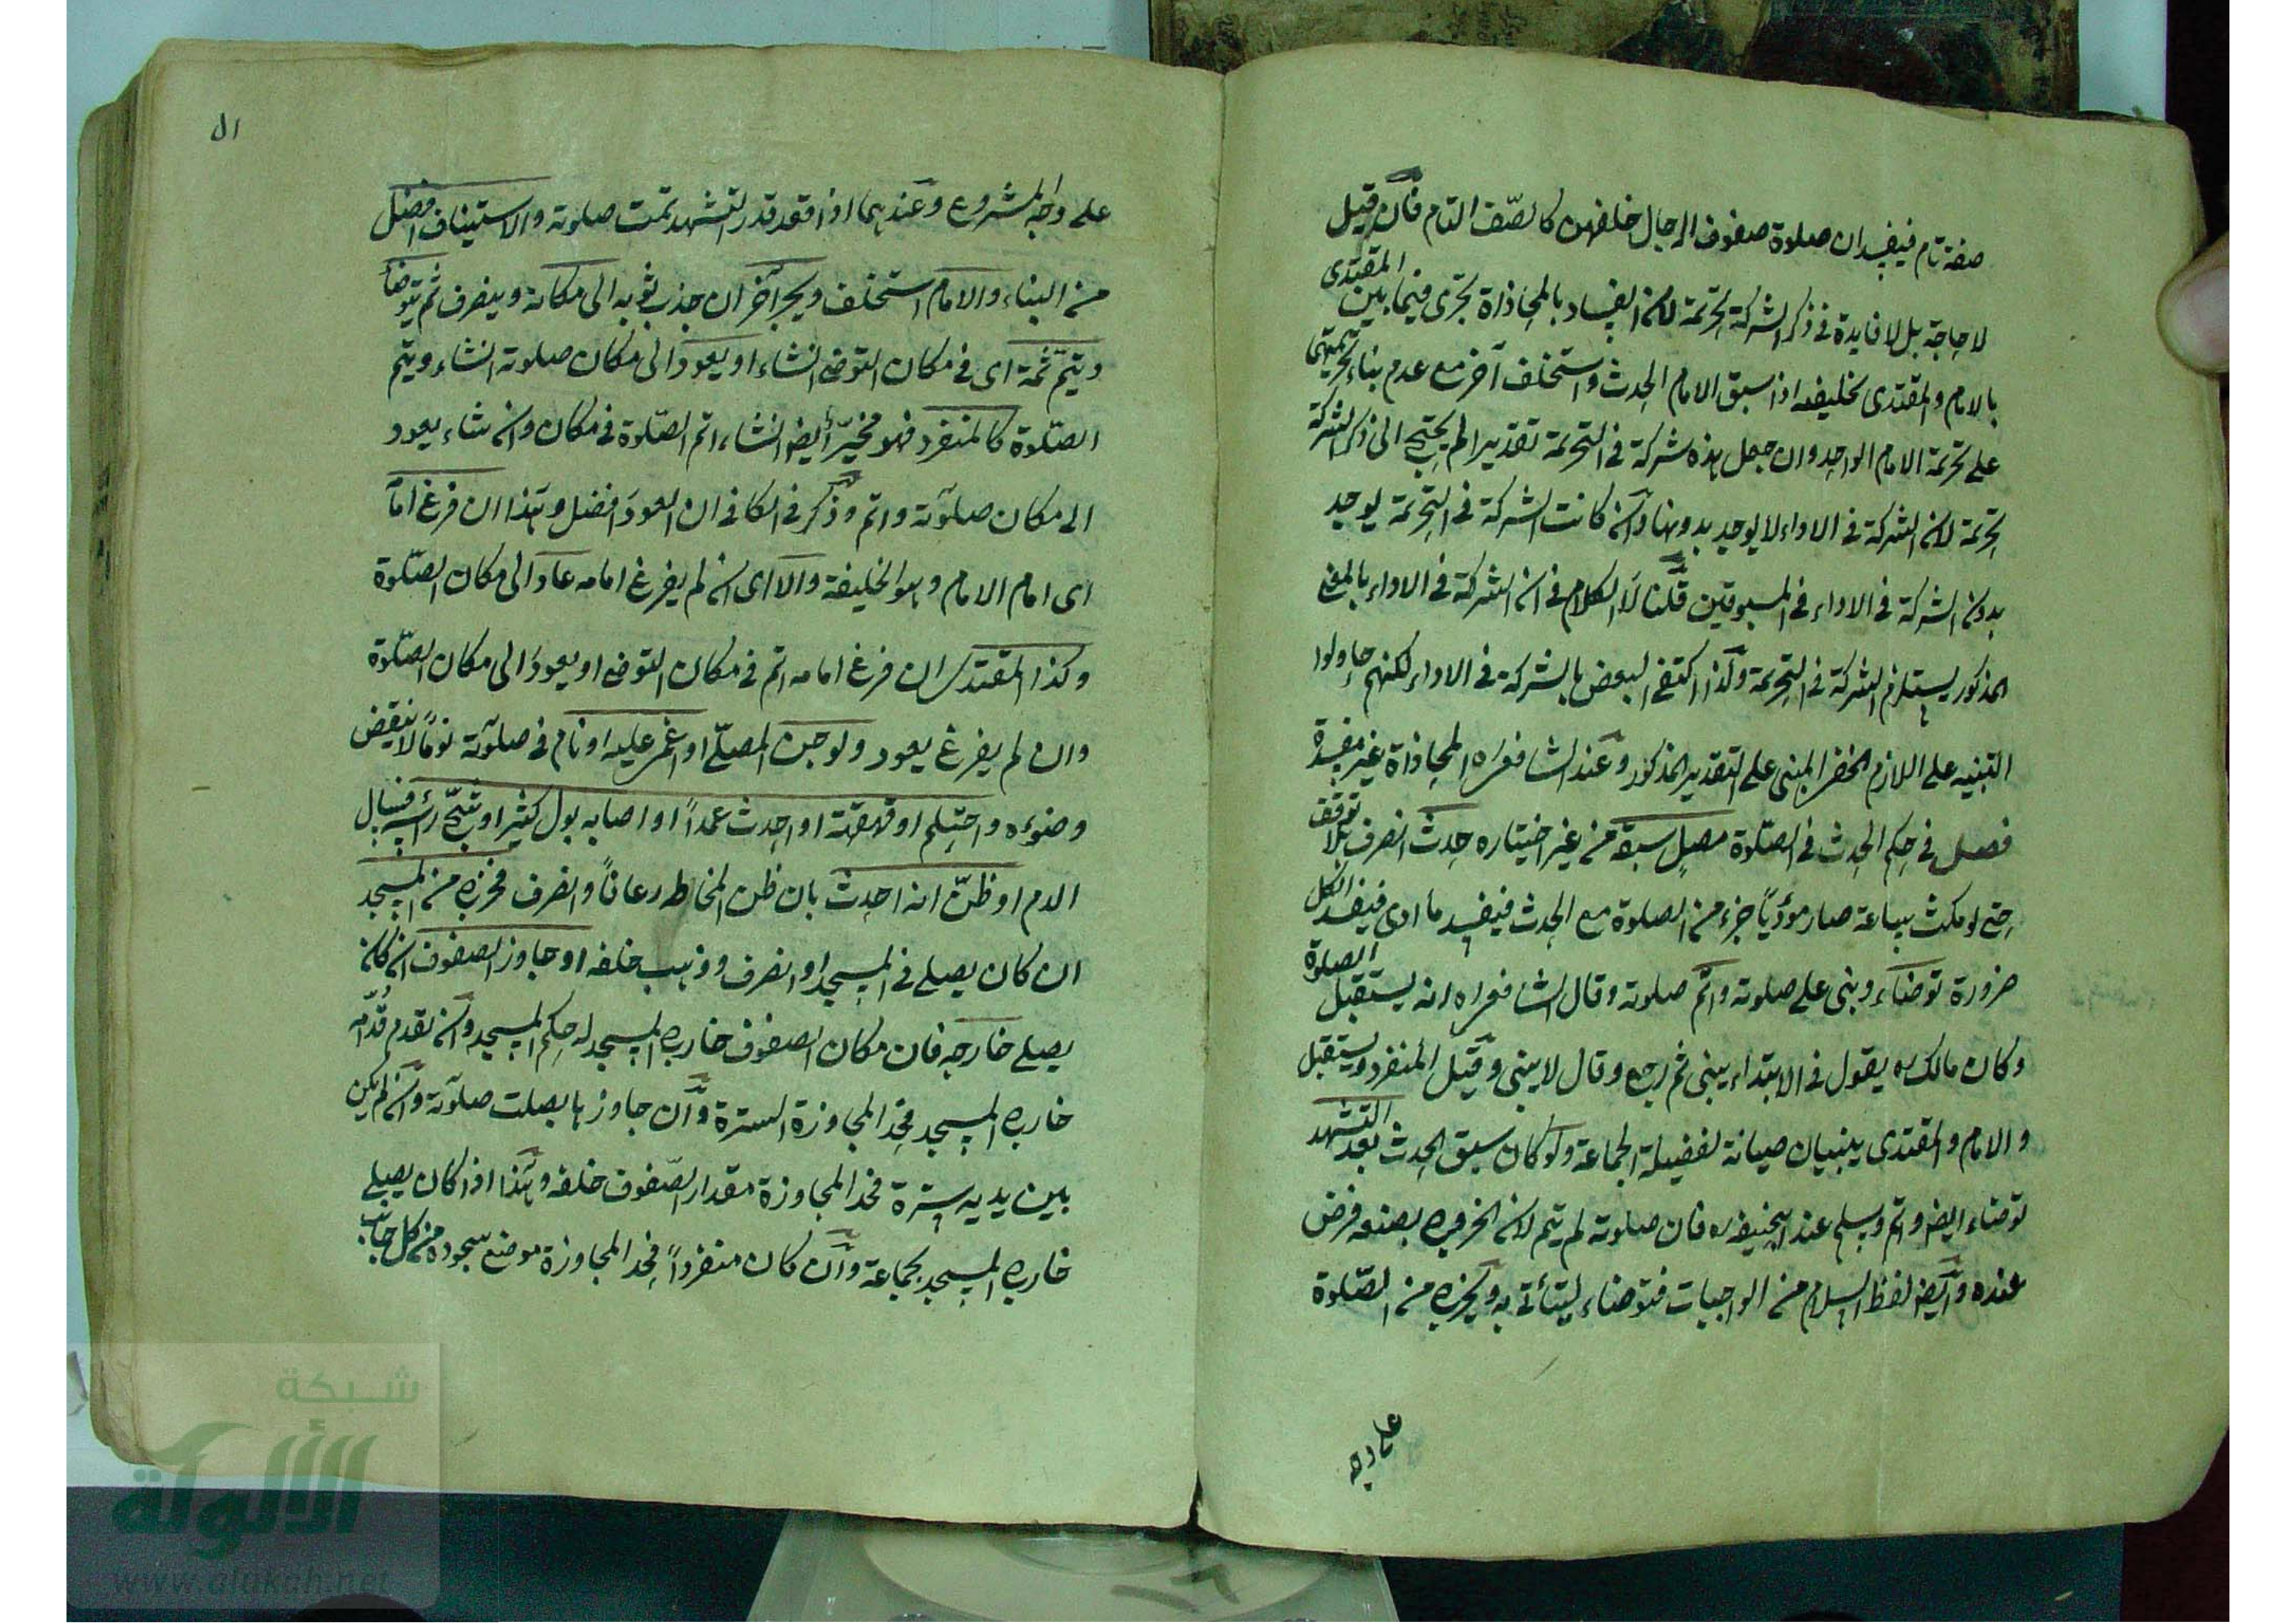 صفة تام فيفيد ان صلوة صفوف الرجال خلفهن كالصف التام فان قيل
لا حاجة بل لا فايدة فى ذكر الشركة تحريمة لان الفساد بالمحاذاة تجرى فيما بين المقتدى
بالامام والمقتدى بخليفه اذا سبق الامام الحدث واستخلف آخر مع عدم بناء تحريمتهما
على تحريمة الامام الواحد وان جعل هذه شركة فى التحريمة تقديرا لم يحتج الى ذكر الشركة
تحريمة لان الشركة فى الاداء لا يوجد بدونها وان كانت الشركة فى التحريمة يوجد
بدون الشركة فى الاداء فى المسبوقين قلنا لا الكلام فى ان الشركة فى الاداء بالمعنى
المذكور يستلزم الشركة فى التحريمة ولذا اكتفى البعض بالشركة فى الاداء لكنهم حاولوا
التنبيه على اللازم الخفى المبنى على التقدير المذكور وعند الشافعى ره المحاذاة غير مفسدة
فصل فى حكم الحدث فى الصلوة مصل سبقه من غير اختياره حدث انصرف بلا توقف
حتى لو مكث ساعة صار مؤديا جزء من الصلوة مع الحدث فيفسد ما ادى فيفسد الكل
ضرورة توضاء وبنى على صلوته واتم صلوته وقال الشافعى ره انه يستقبل الصلوة
وكان مالك ره يقول فى الابتداء يبنى ثم رجع وقال لا يبنى وقيل المنفرد يستقبل
والامام والمقتدى يبنيان صيانة لفضيلة الجماعة ولو كان سبق الحدث بعد التشهد
توضاء ايضا واتم وسلم عند ابيحنيفه ره فان صلوته لم يتم لان الخروج بصنعه فرض
عنده وايضا لفظ السلام من الواجبات فتوضاء ليتأتى به ويخرج من الصلوة
على وجه
٥١
على وجه المشروع وعندهما اذا قعد قدر التشهد تمت صلوته والاستيناف افضل
من البناء والامام استخلف ويجر آخر ان جذب ثوبه الى مكانه وينصرف ثم يتوضأ
ويتم ثمة اى فى مكان التوضى ان شاء او يعود الى مكان صلوته ان شاء ويتم
الصلوة كالمنفرد فهو مخير أيضا ان شاء اتم الصلوة فى مكان وان شاء يعود
الى مكان صلوته واتم وذكر فى الكافى ان العود افضل وهذا ان فرغ امامه
اى امام الامام وهو الخليفة والا اى ان لم يفرغ امامه عاد الى مكان الصلوة
وكذا المقتدى ان فرغ امامه اتم فى مكان التوضى او يعود الى مكان الصلوة
وان لم يفرغ يعود ولو جن المصلى او اغمى عليه او نام فى صلوته نوما لا ينقض
وضوءه واحتلم او قهقهة او احدث عمدا او اصابه بول كثير او شج رأسه فسال
الدم او ظن انه احدث بان ظن المخاط رعافا وانصرف فخرج من المسجد
ان كان يصلى فى المسجد او انصرف وذهب خلفه او جاوز الصفوف ان كان
يصلى خارجه فان مكان الصفوف خارج المسجد له حكم المسجد وان تقدم قدامه
خارج المسجد فحد المجاوزة السترة وان جاوزها بطلت صلوته وان لم يكن
بين يديه سترة فحد المجاوزة مقدار الصفوف خلفه وهذا اذا كان يصلى
خارج المسجد بجماعة وان كان منفردا فحد المجاوزة موضع سجوده من كل جانب
شبكة
الألوكة
www.alukah.net